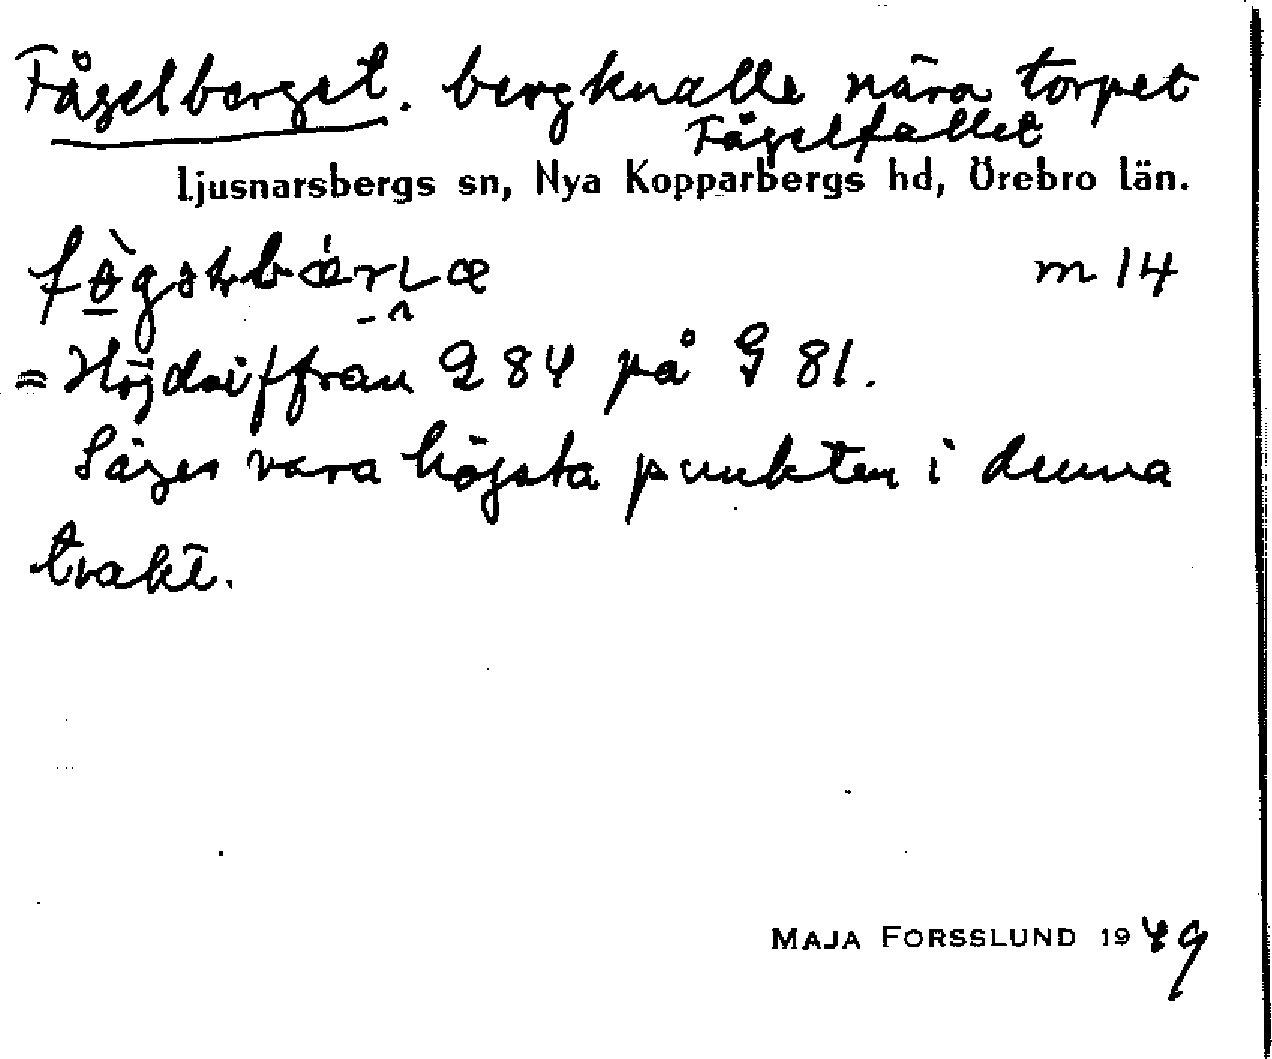 Fågelberget. bergknalle nära torpet
Fågelfallet
Ljusnarsbergs sn, Nya Kopparbergs hd, Örebro län.
m 14
= Höjdsiffran 284 på G 81.
Säges vara högsta punkten i denna
trakt.
MAJA FORSSLUND 1949